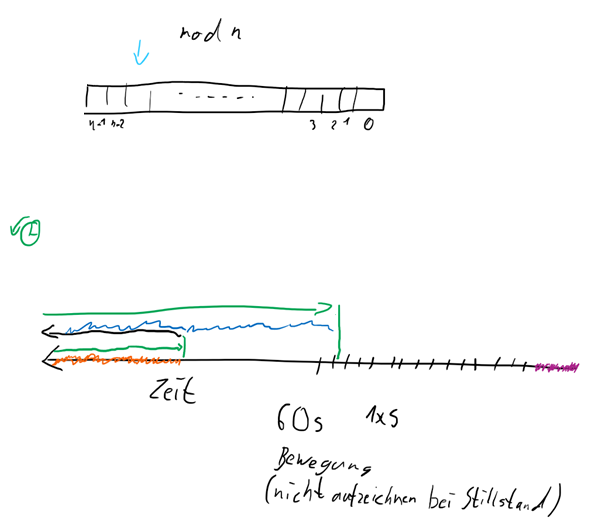 mod n
n-1 n-2 3 2 1 0
Zeit
60s 1xs
Bewegung
(nicht aufzeichnen bei Stillstand)